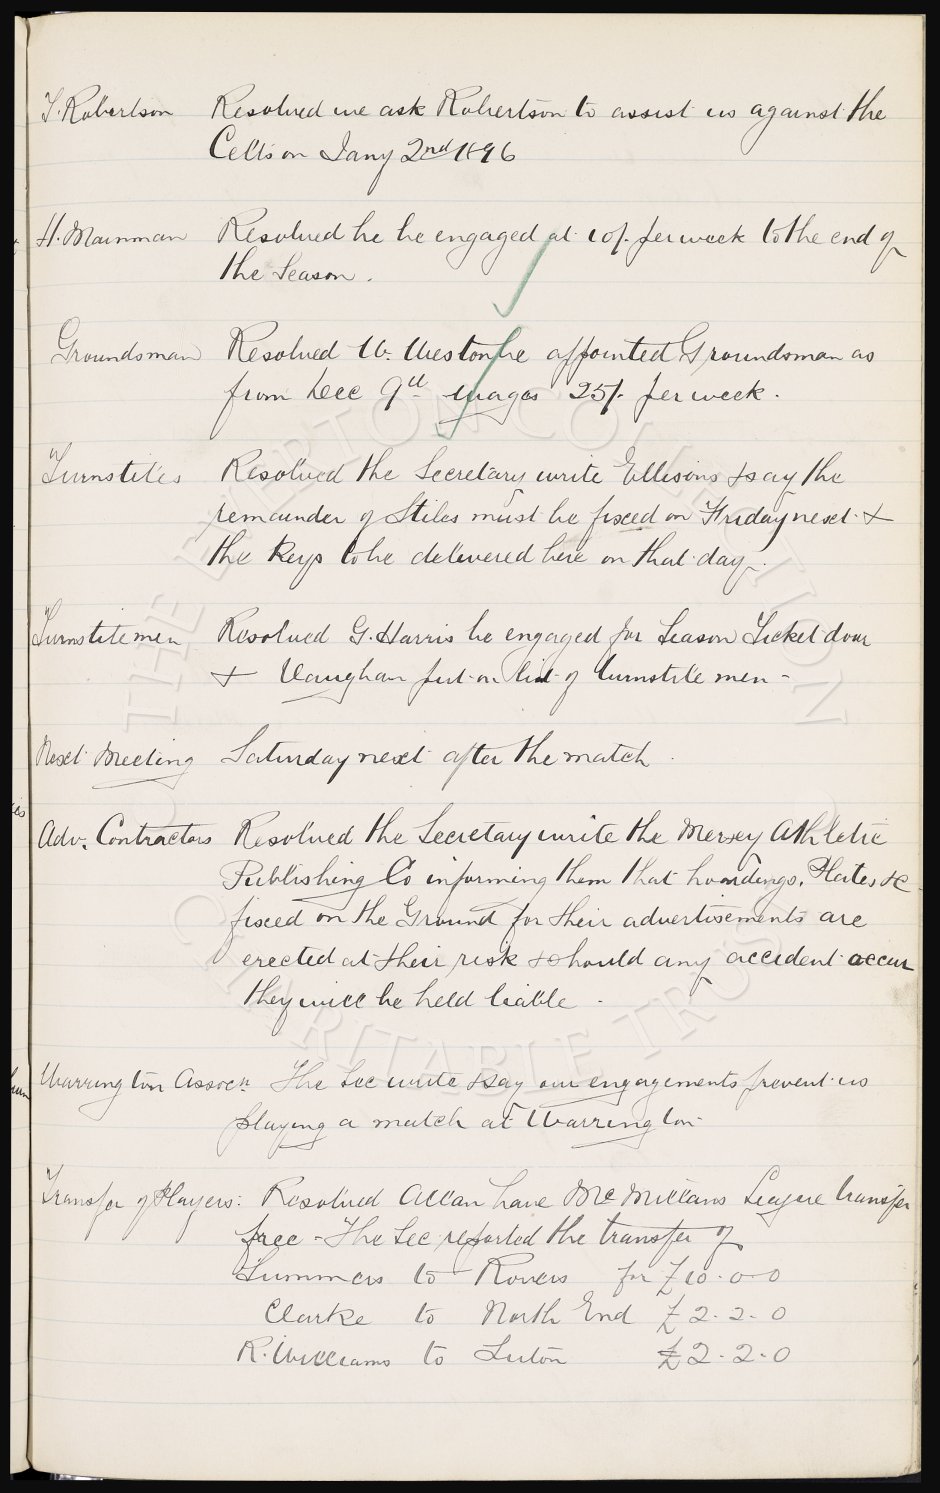 T. Robertson Resolved we ask Robertson to assist us against the
Celts on Jany 2nd 1896
H. Mainman Resolved he be engaged at 10/- per week to the end of
the Season.
Groundsman Resolved W. Weston be appointed Groundsman as
from Dec 9th wages 25/- per week.
Turnstiles Resolved the Secretary write Ellisons & say the
remainder of Stiles must be fixed on Friday next &
the Keys to be delivered here on that day.
Turnstile men Resolved G. Harris be engaged for Season Ticket door
& Vaughan put on list of turnstile men -
Next Meeting Saturday next after the match.
Adv. Contractors Resolved the Secretary write the Mersey Athletic
Publishing Co informing them that hoardings, Plates &c
fixed on the Ground for their advertisements are
erected at their risk & should any accident occur
they will be held liable.
Warrington Assocn The Sec write & say our engagements prevent us
playing a match at Warrington
Transfer of Players: Resolved Allan have McMillans League transfer
free - The Sec reported the transfer of
Summers to Rovers for £10.0.0
Clarke to North End £2.2.0
R. Williams to Luton £2.2.0
THE EVERTON COLLECTION
CHARITABLE TRUST